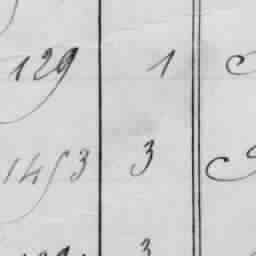 129 1
1453 3
3